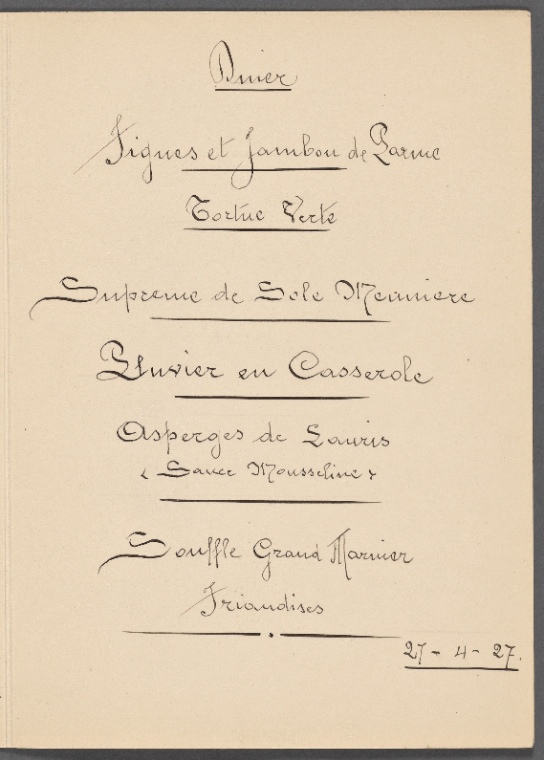 Diner
Figues et Jambon de Parme
Tortue Verte
Supreme de Sole Meuniere
Pluvier en Casserole
Asperges de Lauris
« Sauce Mousseline »
Souffle Grand Marnier
Friandises
27 - 4 - 27.